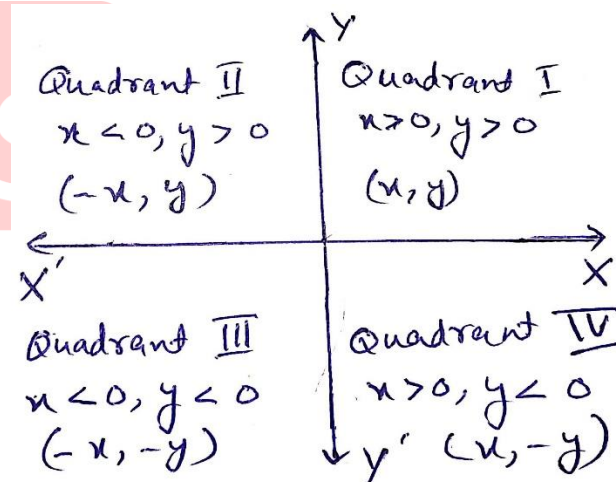 Y
Quadrant II
x < 0, y > 0
(-x, y)
Quadrant I
x > 0, y > 0
(x, y)
X'
X
Quadrant III
x < 0, y < 0
(-x, -y)
Quadrant IV
x > 0, y < 0
(x, -y)
Y'